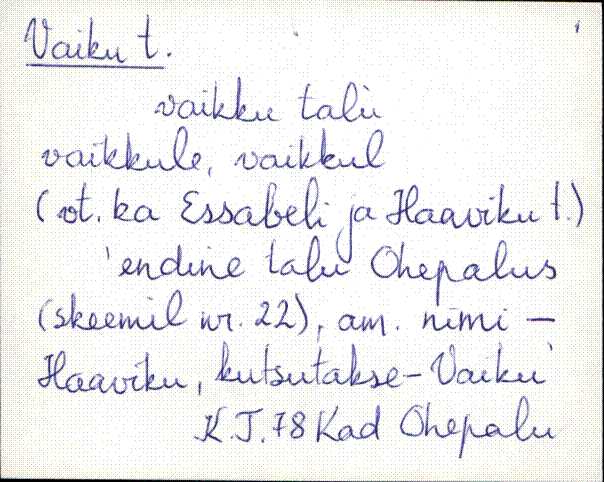 Vaiku t.
vaikku talu
vaikkule, vaikkul
(vt. ka Essabeli ja Haaviku t.)
'endine talu Ohepalus
(skeemil nr. 22), am. nimi –
Haaviku, kutsutakse – Vaiku'
K.T. 78 Kad Ohepalu